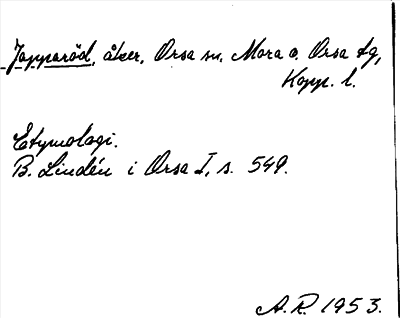 Jopparöd, åker, Orsa sn, Mora o. Orsa tg,
Kopp. l.
Etymologi.
B. Lindén i Orsa I, s. 549.
A.R. 1953.